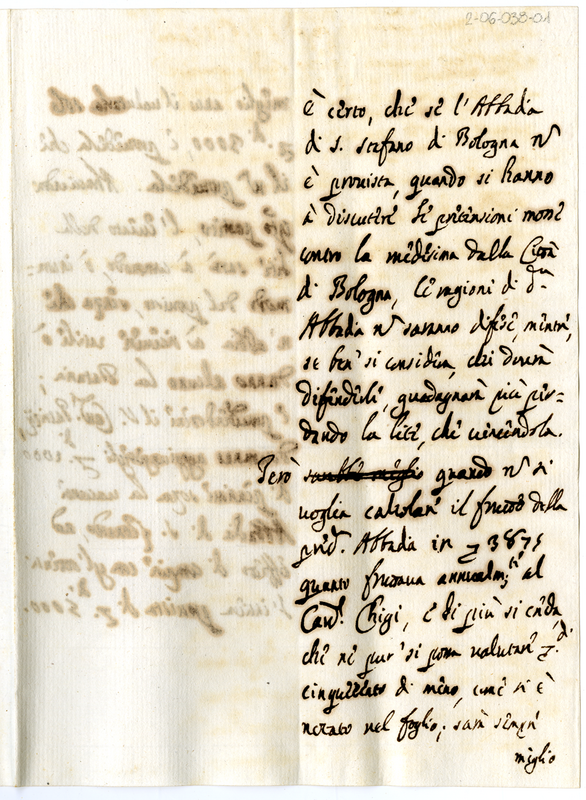 2-06-038-01
È certo, che se l'Abbadia
di S. Stefano di Bologna nō
è provista, quando si hanno
à discutere le pretensioni mosse
contro la medesima dalla Città
di Bologna, le ragioni di dᵃ
Abbadia nō saranno difese, mentre,
se ben si considera, chi dovrà
difenderle, guadagnarà più per=
dendo la lite, che vincendola.
Però sarebbe meglio quando nō si
voglia calcolare il frutto della
pred. Abbadia in 3875
quanto fruttava annualm.te al
Card. Chigi, e di più si creda,
che ne pur si possa valutare
cinquecento di meno, come si è
notato nel foglio; sarà sempre
miglio